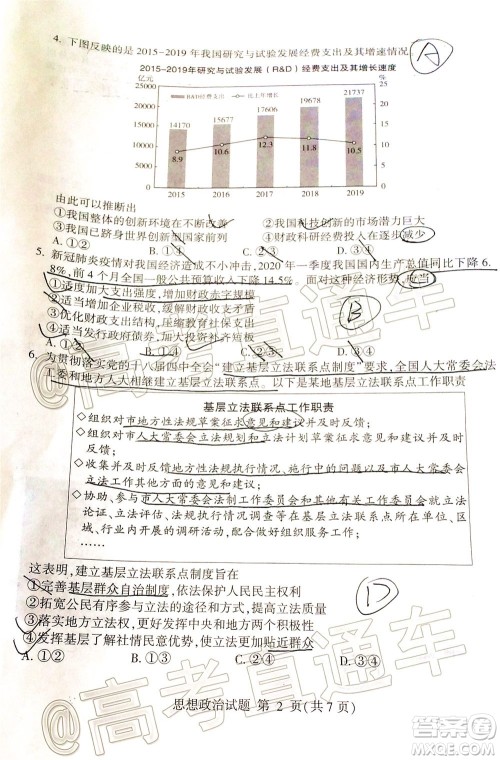 4. 下图反映的是2015-2019年我国研究与试验发展经费支出及其增速情况
A
2015-2019年研究与试验发展(R&D)经费支出及其增长速度
亿元 %
R&D经费支出 比上年增长
25000 20000 15000 10000 5000 0
14170 15677 17606 19678 21737
8.9 10.6 12.3 11.8 10.5
25 20 15 10 5 0
2015 2016 2017 2018 2019
由此可以推断出
①我国整体的创新环境在不断改善 ②我国科技创新的市场潜力巨大
③我国已跻身世界创新型国家前列 ④财政科研经费的投入逐步减少
A. ①② B. ①③ C. ②④ D. ③④
5. 新冠肺炎疫情对我国经济造成不小冲击,2020年一季度我国国内生产总值同比下降6.
8%,前4个月全国一般公共预算收入下降14.5%。面对这种经济形势,应当
①适度加大支出强度,增加财政赤字规模
②增加国有企业税收,补贴中小企业亏损
③优化财政支出,压缩社会保障支出
④适当发行政府债券,加大投资补齐短板
B
A. ①② B. ①④ C. ②③ D. ③④
6. 为贯彻落实党的十八届四中全会“建立基层立法联系点制度”要求,全国人大常委会法
工委和地方人大相继建立基层立法联系点。以下是某地基层立法联系点工作职责
基层立法联系点工作职责
◇组织对市地方性法规草案征求意见和建议并及时反馈
◇组织对市人大常委会立法规划和立法计划草案征求意见和建议并及时
反馈
◇收集并及时反馈地方性法规实施中的问题以及对市人大常委会立法
工作的意见和建议
◇协助、参与市人大常委会法制工作委员会和其他有关工作委员会开展
立法调研、立法评估、法规执行情况调查等在以及本部门、本单位、区
域、行业内开展的其他调研等工作
这表明,建立基层立法联系点制度旨在
①完善基层群众自治制度,依法保护人民民主权利
②拓宽公民有序参与立法的途径和方式,提高立法质量
③落实地方立法自主权,推动社会治理体系创新
④发挥基层了解社情民意优势,使立法更加贴近群众
D
A. ①② B. ①③ C. ③④ D. ②④
思想政治试题 第 2 页(共7页)
高考直通车
作业帮